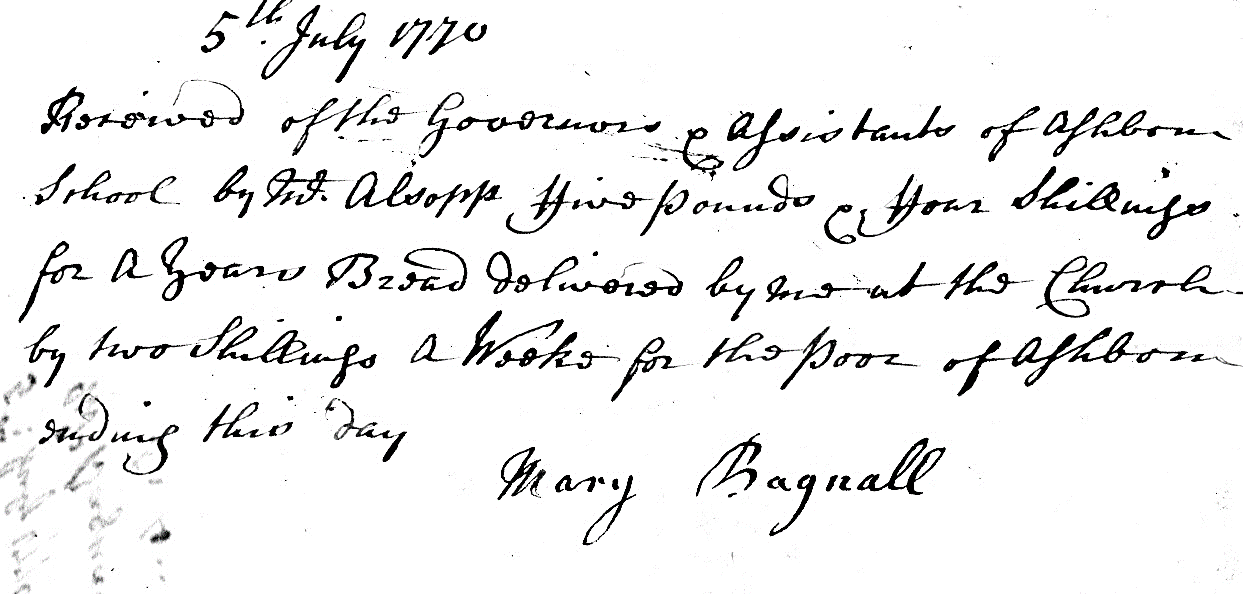 5th July 1770
Received of the Governors & Assistants of Ashborn
School by Alsopp Five pounds & Four Shillings
for A Years Bread delivered by me at the Church
by two Shillings A Weeke for the poor of Ashborn
ending this day
Mary Bagnall